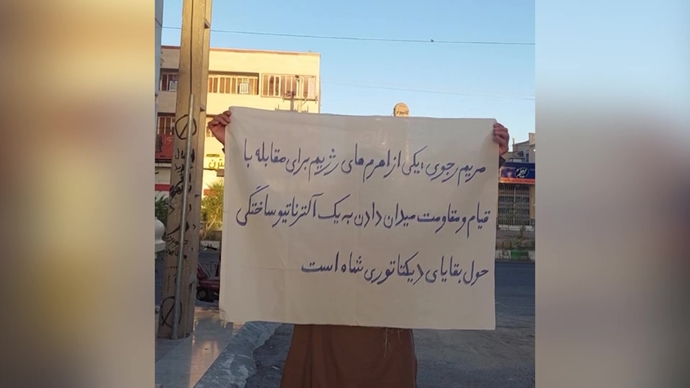 مریم رجوی: یکی از اهرم های رژیم برای مقابله با
قیام و مقاومت میدان دادن به یک آلترناتیو ساختگی
حول بقایای دیکتاتوری شاه است